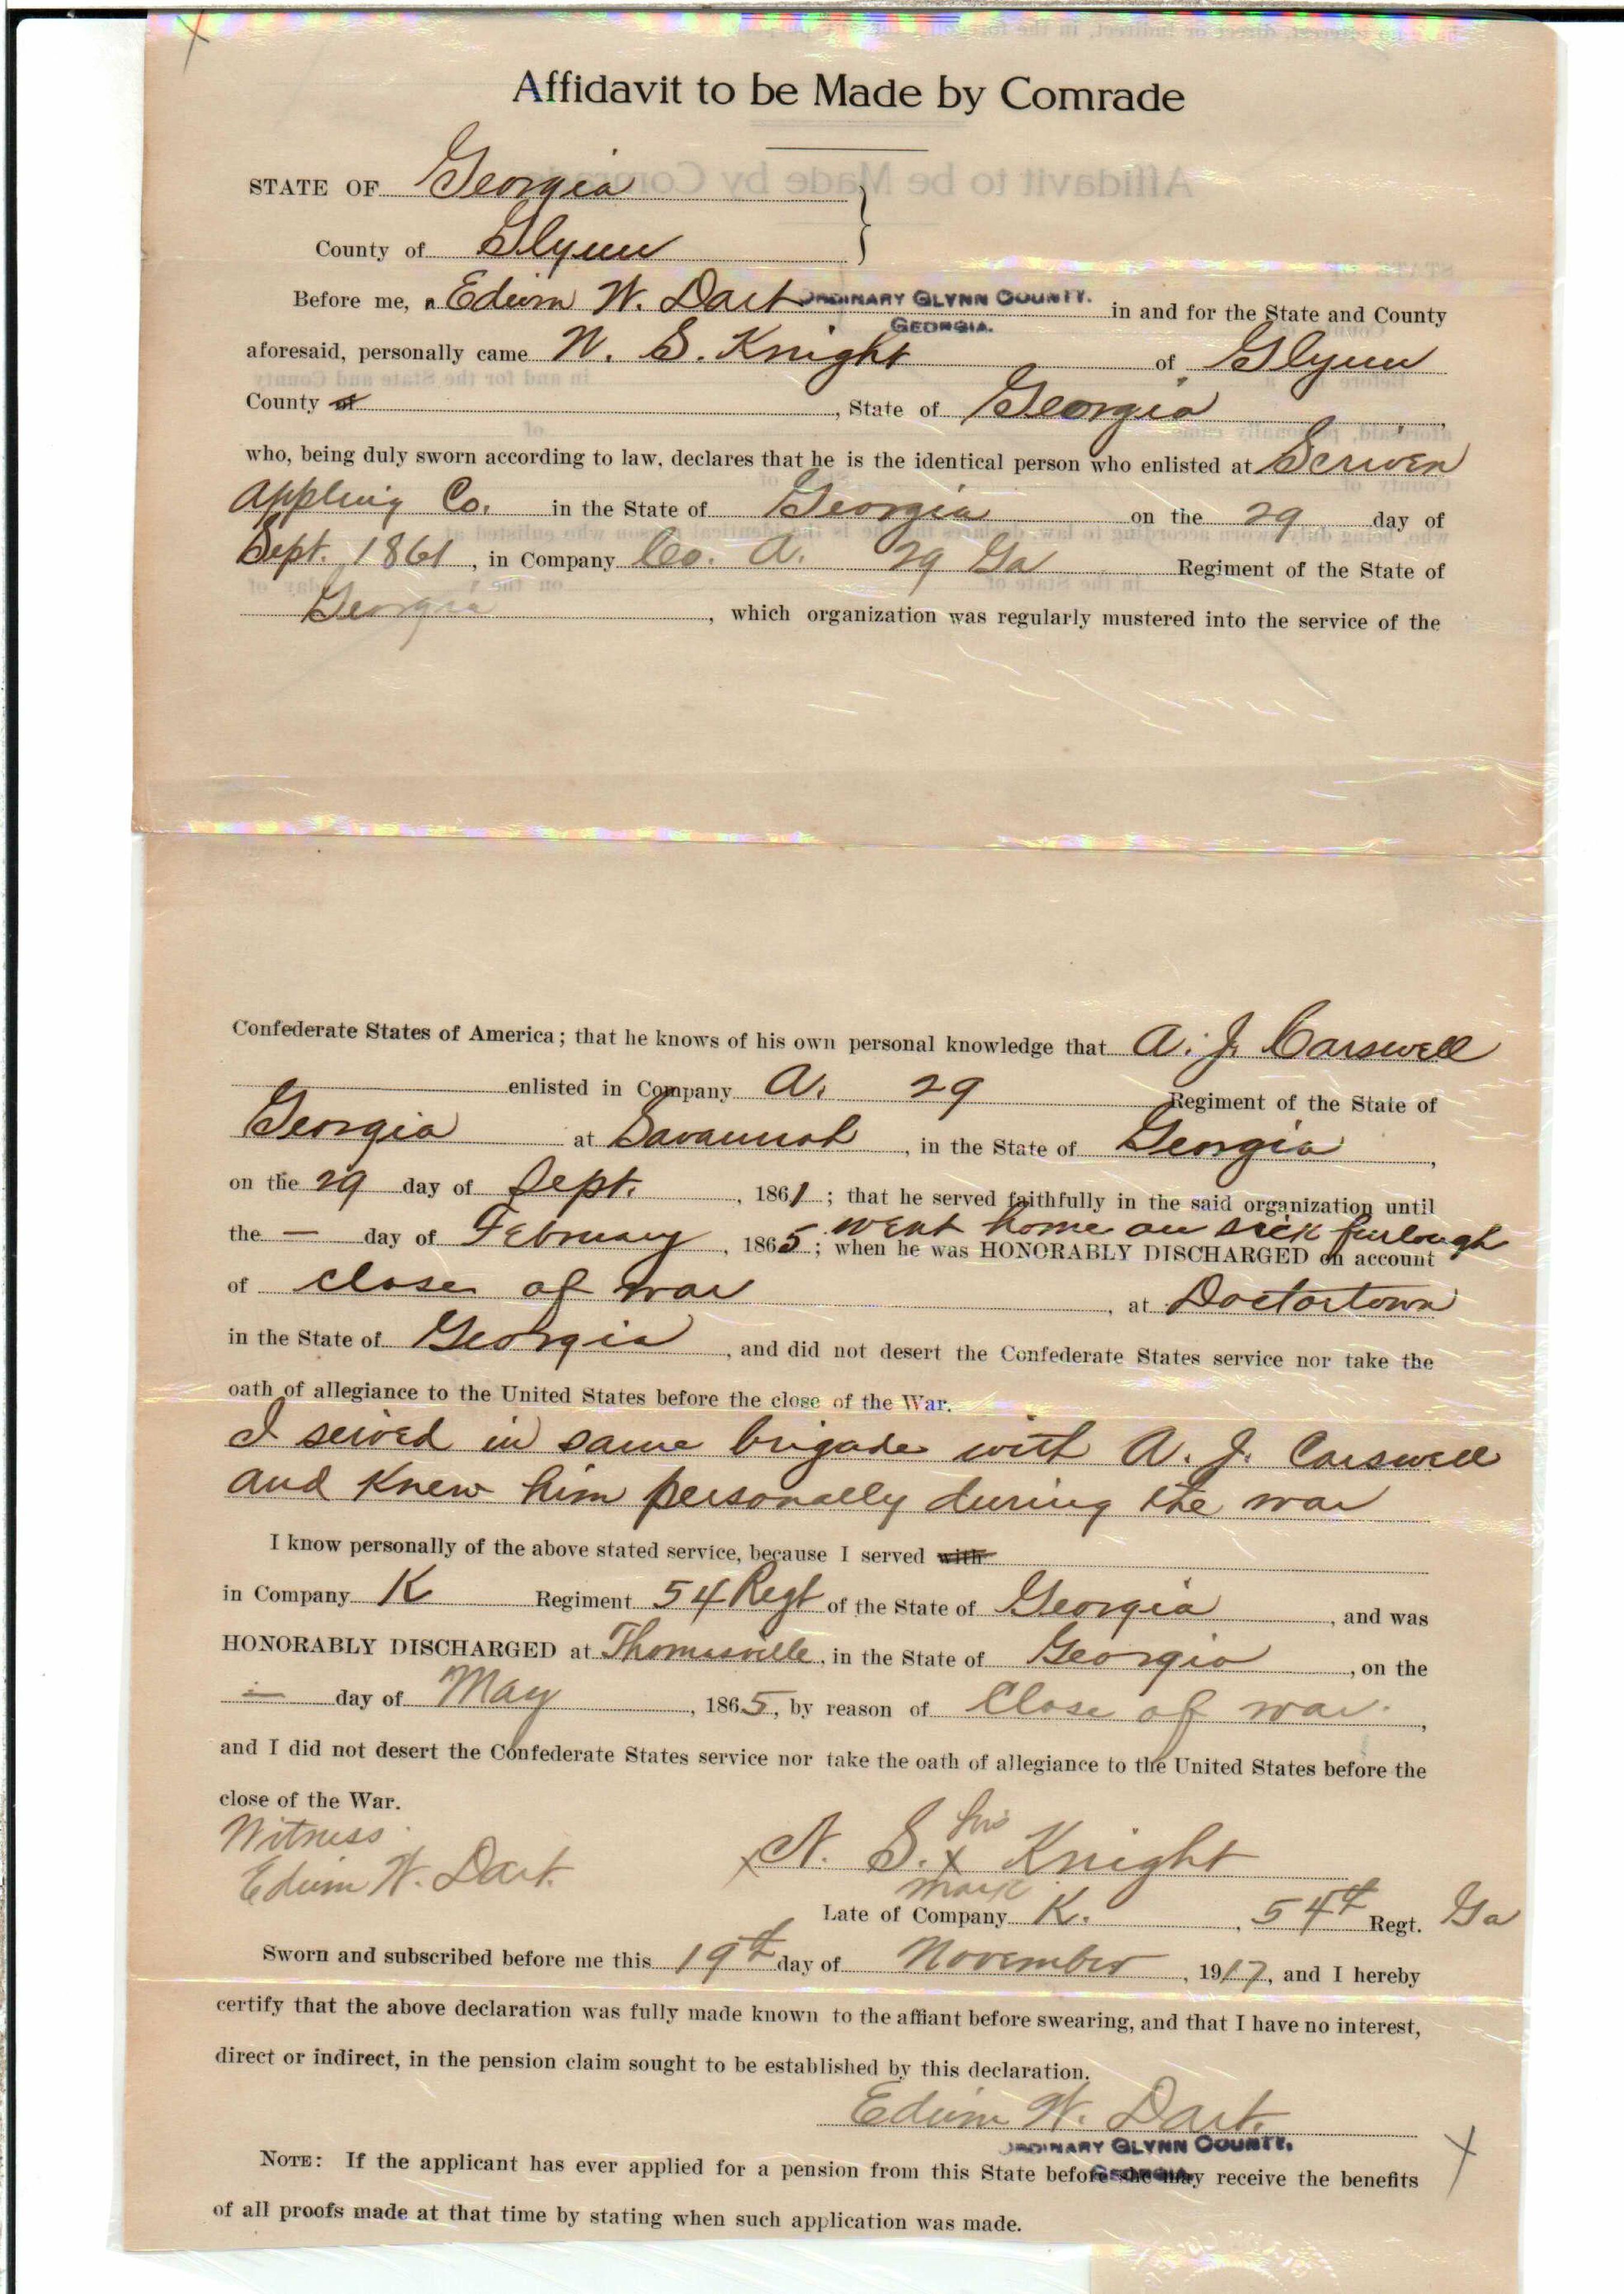 Affidavit to be Made by Comrade
STATE OF Georgia
County of Glynn
Before me, a Edwin W. Dart ORDINARY GLYNN COUNTY. in and for the State and County
GEORGIA.
aforesaid, personally came N. S. Knight of Glynn
County of , State of Georgia
who, being duly sworn according to law, declares that he is the identical person who enlisted at Scriven
Appling Co. in the State of Georgia on the 29 day of
Sept. 1861, in Company Co. A. 29 Ga Regiment of the State of
Georgia, which organization was regularly mustered into the service of the
Confederate States of America; that he knows of his own personal knowledge that A. J. Carswell
enlisted in Company A. 29 Regiment of the State of
Georgia at Savannah, in the State of Georgia,
on the 29 day of Sept., 1861; that he served faithfully in the said organization until
went home on sick furlough
the — day of February, 1865; when he was HONORABLY DISCHARGED on account
of close of war, at Doctortown
in the State of Georgia, and did not desert the Confederate States service nor take the
oath of allegiance to the United States before the close of the War.
I served in same brigade with A. J. Carswell
and Knew him personally during the war
I know personally of the above stated service, because I served with
in Company K Regiment 54 Regt of the State of Georgia, and was
HONORABLY DISCHARGED at Thomasville, in the State of Georgia, on the
— day of May, 1865, by reason of Close of war.,
and I did not desert the Confederate States service nor take the oath of allegiance to the United States before the
close of the War.
Witness
Edwin W. Dart.
his
x N. S. x Knight
mark
Late of Company K., 54th Regt. Ga
Sworn and subscribed before me this 19th day of November, 1917, and I hereby
certify that the above declaration was fully made known to the affiant before swearing, and that I have no interest,
direct or indirect, in the pension claim sought to be established by this declaration.
Edwin W. Dart.
ORDINARY GLYNN COUNTY,
GEORGIA.
NOTE: If the applicant has ever applied for a pension from this State before she may receive the benefits
of all proofs made at that time by stating when such application was made.